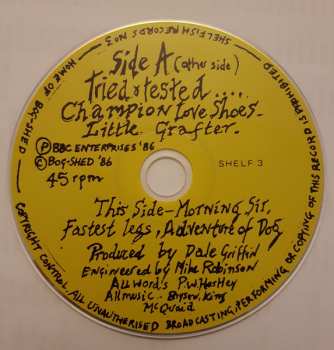 SHELFISH RECORDS NO3
HOME OF BOG-SHED
Side A (other side)
Tried & tested ....
Champion Love Shoes.
Little Grafter.
Ⓟ BBC ENTERPRISES '86
© BOG-SHED '86
45 rpm
SHELF 3
This Side - Morning Sir,
Fastest legs, Adventure of Dog
Produced by Dale Griffin
Engineered by Mike Robinson
All words P.W. Hartley
All music - Bryson, King
McQuaid
COPYRIGHT CONTROL, ALL UNAUTHORISED BROADCASTING, PERFORMING OR COMING OF THIS RECORD IS PROHIBITED